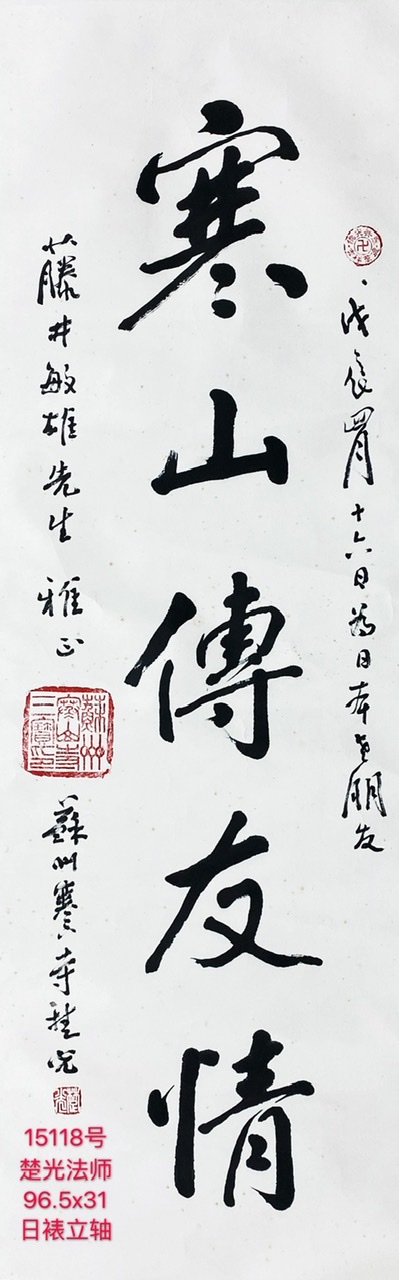 戊辰四月十六日為日本老朋友
寒山傳友情
藤井敏雄先生 雅正
蘇州寒山寺三寶印
蘇州寒山寺楚光
15118号
楚光法师
96.5x31
日裱立轴